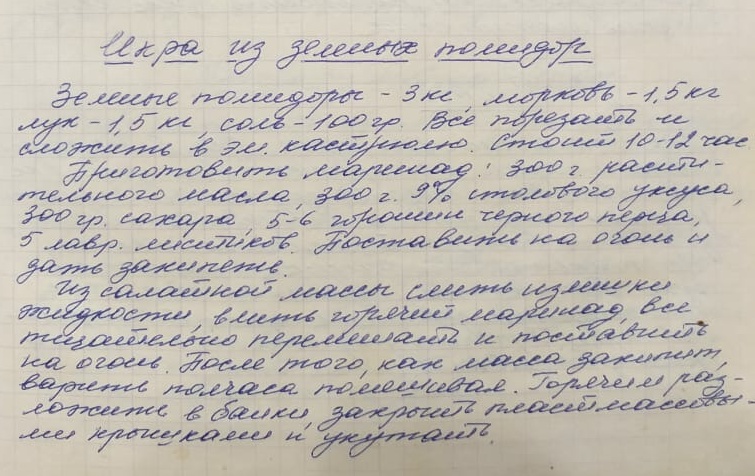 Икра из зеленых помидор
Зеленые помидоры - 3 кг, морковь - 1,5 кг
лук - 1,5 кг, соль - 100 гр. Все порезать и
сложить в эм. кастрюлю. Стоит 10-12 час
Приготовить маринад: 300 г. расти-
тельного масла, 300 г. 9% столового уксуса,
300 гр. сахара, 5-6 горошин черного перца,
5 лавр. листиков. Поставить на огонь и
дать закипеть.
Из салатной массы слить излишки
жидкости, влить горячий маринад, все
тщательно перемешать и поставить
на огонь. После того, как масса закипит,
варить полчаса помешивая. Горячим раз-
ложить в банки, закрыть пластмассовы-
ми крышками и укутать.